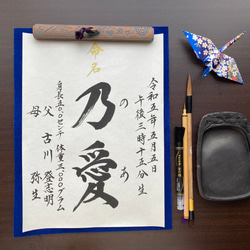 命名
令和五年五月五日
午後三時十五分 生
乃愛
のあ
身長五〇センチ 体重三〇〇〇グラム
父 古川 登志明
母 弥生